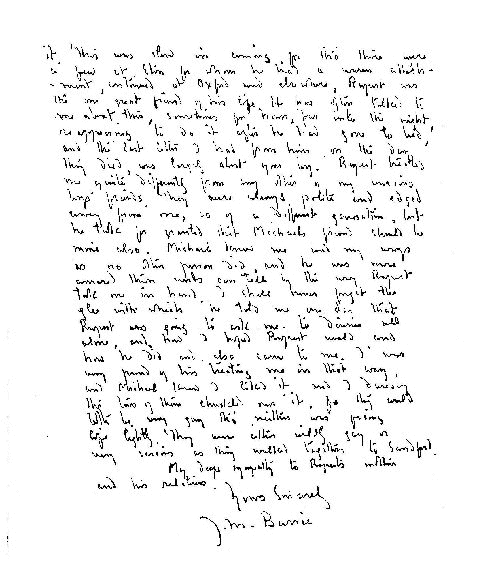 it. This was slow in coming for tho' there were
a few at Eton for whom he had a warm attach-
-ment, continued at Oxford and elsewhere, Rupert was
the one great friend of his life. It has often talked to
me about this, sometimes for hours, far into the night
reappearing to do it after he had gone to bed,
and the last letter I had from him on the day
they died was largely about
me quite differently from any other of my
boys' friends. They were always polite and edged
away from me, as of a different generation, but
he took for granted that Michael's friend should be
mine also. Michael knew me and my ways
as no other person did, and he was more
amused than words can tell by the way Rupert
took me in hand. I shall never forget the
glee with which he told me one day that
Rupert was going to ask me to dinner all
alone, and how I hoped Rupert would and
how he did and also came to me. I was
very proud of his treating me in that way,
and Michael knew I liked it and I daresay
the two of them chuckled over it, for they could
both be very gay tho' neither was facing
life lightly. They were either wildly gay or
very serious as they walked together to Sandford.
My deep sympathy to Rupert's mother
and his relatives.
Yours Sincerely
J. M. Barrie